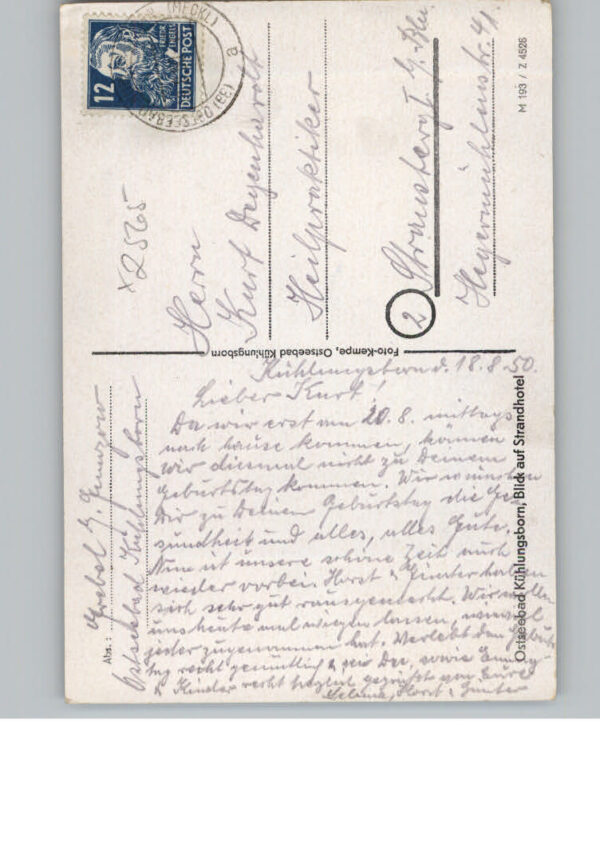 Kühlungsborn d. 18.8.50.
Lieber Kurt!
Da wir erst am 20.8. mittags
nach hause kommen, können
wir diesmal nicht zu Deinem
Geburtstag kommen. Wir wünschen
Dir zu Deinem Geburtstag die Ge-
sundheit und alles, alles Gute.
Nun ist unsere schöne Zeit auch
wieder vorbei. Horst & Günter haben
sich sehr gut rausgemacht. Wir wollen
uns heute mal wiegen lassen, wieviel
jeder zugenommen hat. Verlebt den Geburts-
tag recht gemütlich & sei Du, sowie
& Kinder recht herzlich gegrüßt von Eure
Horst & Günter
Abs.:
Ostseebad Kühlungsborn
Foto-Kempe, Ostseebad Kühlungsborn
Ostseebad Kühlungsborn, Blick auf Strandhotel
12
DEUTSCHE POST
FRIEDR. ENGELS
(MECKL)
OSTSEEBAD
a
x2565
Herrn
Kurt Degenhardt
Heilpraktiker
2 Strausberg
Hegermühlenstr. 41.
M 193 / Z 4526